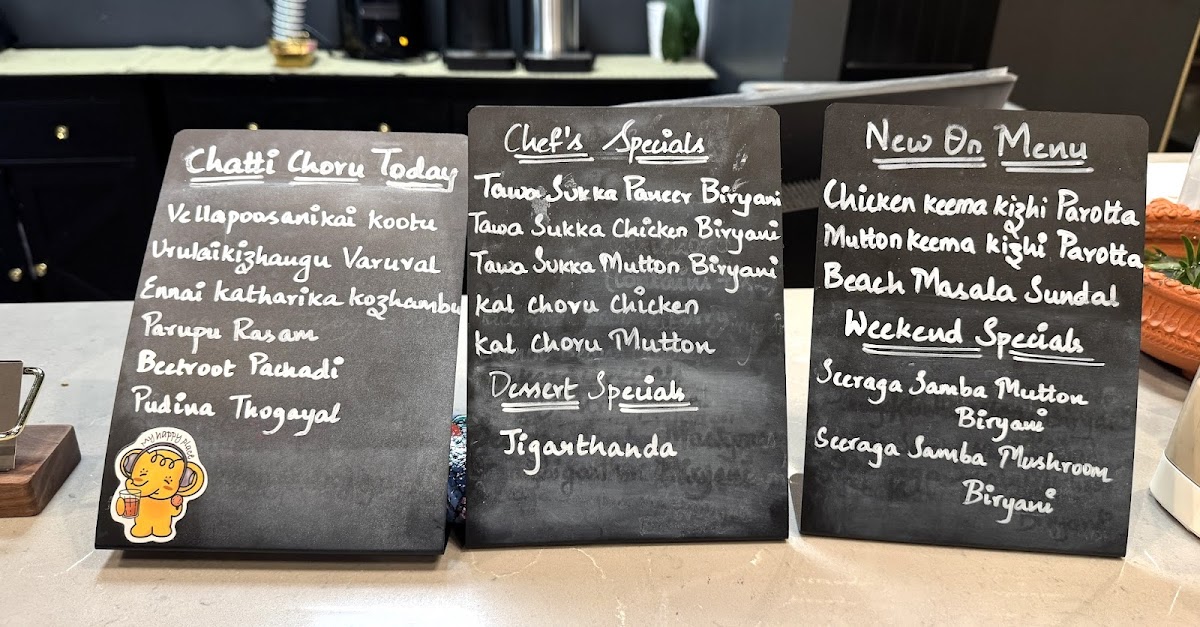 Chatti Choru Today
Vellapoosanikai kootu
Urulaikizhangu Varuval
Ennai katharika kozhambu
Parupu Rasam
Beetroot Pachadi
Pudina Thogayal
my happy place
Chef's Specials
Tawa Sukka Paneer Biryani
Tawa Sukka Chicken Biryani
Tawa Sukka Mutton Biryani
Kal choru Chicken
Kal choru Mutton
Dessert Specials
Jigarthanda
New On Menu
Chicken keema kizhi Parotta
Mutton keema kizhi Parotta
Beach Masala Sundal
Weekend Specials
Seeraga Samba Mutton
Biryani
Seeraga Samba Mushroom
Biryani